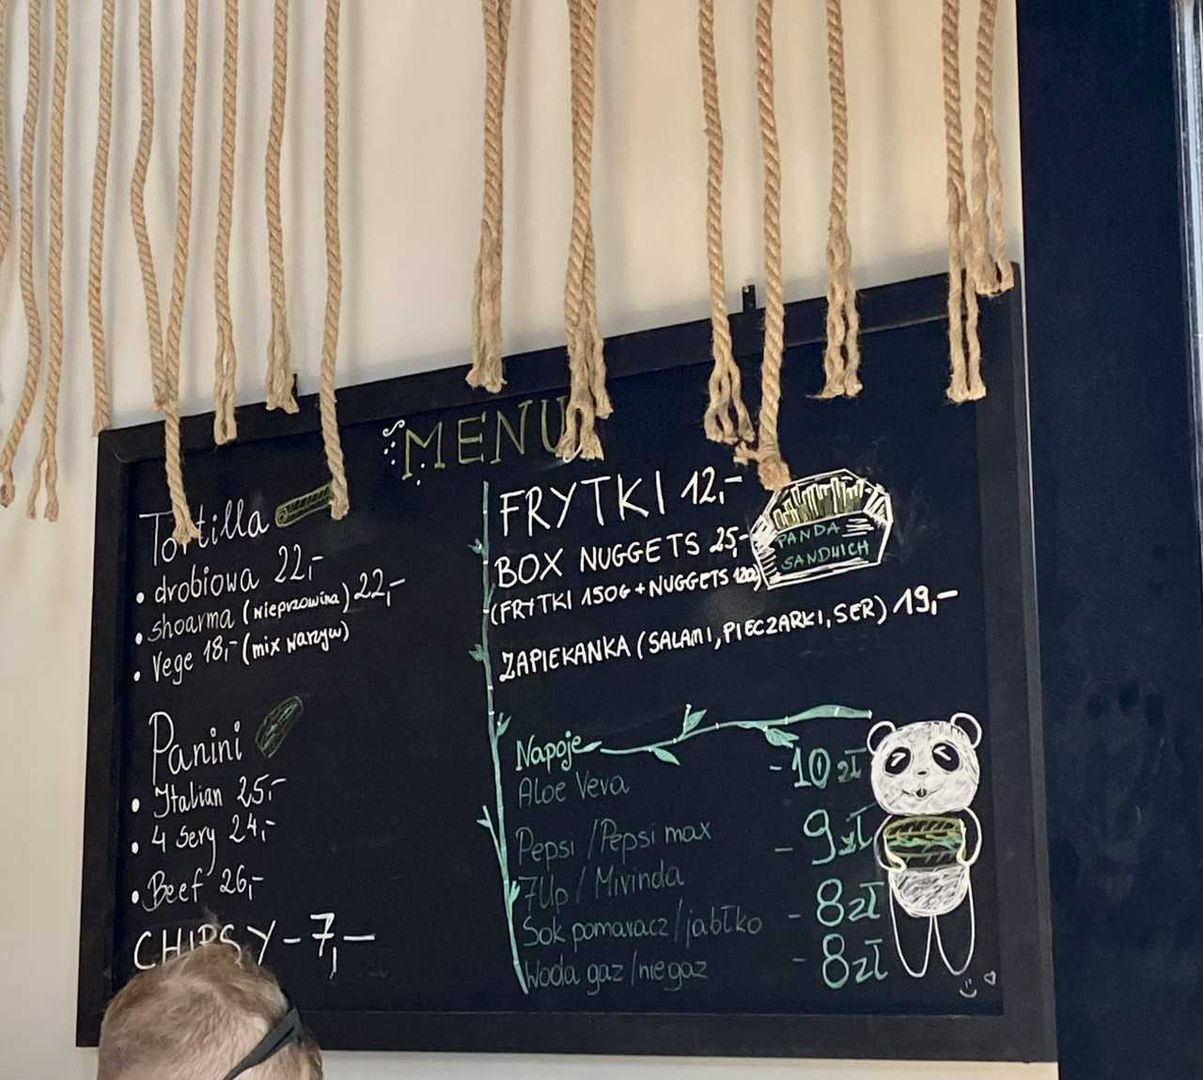 MENU
Tortilla
• drobiowa 22,-
• shoarma (wieprzowina) 22,-
• Vege 18,- (mix warzyw)
Panini
• Italian 25,-
• 4 sery 24,-
• Beef 26,-
CHIPSY - 7,-
FRYTKI 12,-
BOX NUGGETS 25,-
(FRYTKI 150G + NUGGETS
ZAPIEKANKA (SALAMI, PIECZARKI, SER) 19,-
PANDA
SANDWICH
Napoje
Aloe Vera - 10 zł
Pepsi / Pepsi max - 9 zł
7Up / Mirinda
Sok pomaracz / jabłko - 8 zł
Woda gaz / niegaz - 8 zł